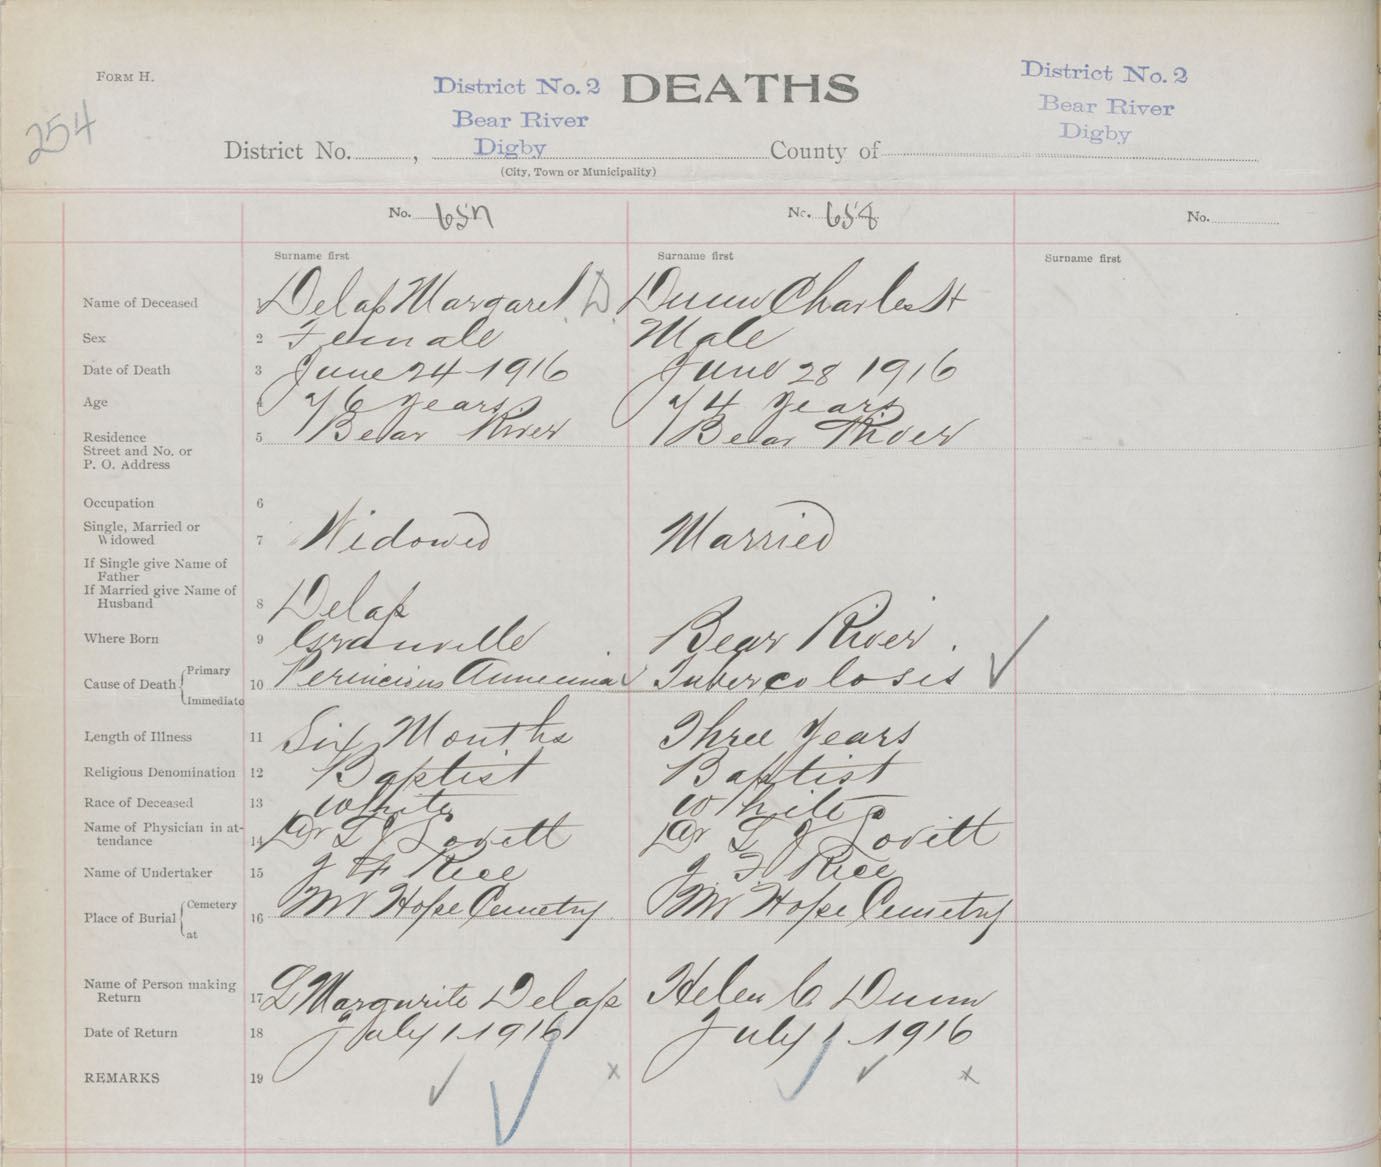 FORM H.
254
District No. 2 DEATHS District No. 2
Bear River Bear River
Digby Digby
District No. , County of
(City, Town or Municipality)
No. 657 No. 658 No.
Surname first Surname first Surname first
Name of Deceased Delap Margaret D. Dunn Charles H
Sex 2 Female Male
Date of Death 3 June 24 1916 June 28 1916
Age 76 years 74 years
Residence 5 Bear River Bear River
Street and No. or
P. O. Address
Occupation 6
Single, Married or
Widowed 7 Widowed Married
If Single give Name of
Father
If Married give Name of
Husband 8 Delap
Where Born 9 Granville Bear River.
Cause of Death Primary 10 Perincious Tubercolosis
Immediate
Length of Illness 11 Six Months Three Years
Religious Denomination 12 Baptist Baptist
Race of Deceased 13 White White
Name of Physician in at-
tendance 14 Dr L J Lovett Dr L J Lovitt
Name of Undertaker 15 J F Rice J. F. Rice
Place of Burial Cemetery 16 Mt Hope Cemetry Mt Hope Cemetry
at
Name of Person making
Return 17 L Margurite Delap Helen C Dunn
Date of Return 18 July 1 1916 July 1 1916
REMARKS 19